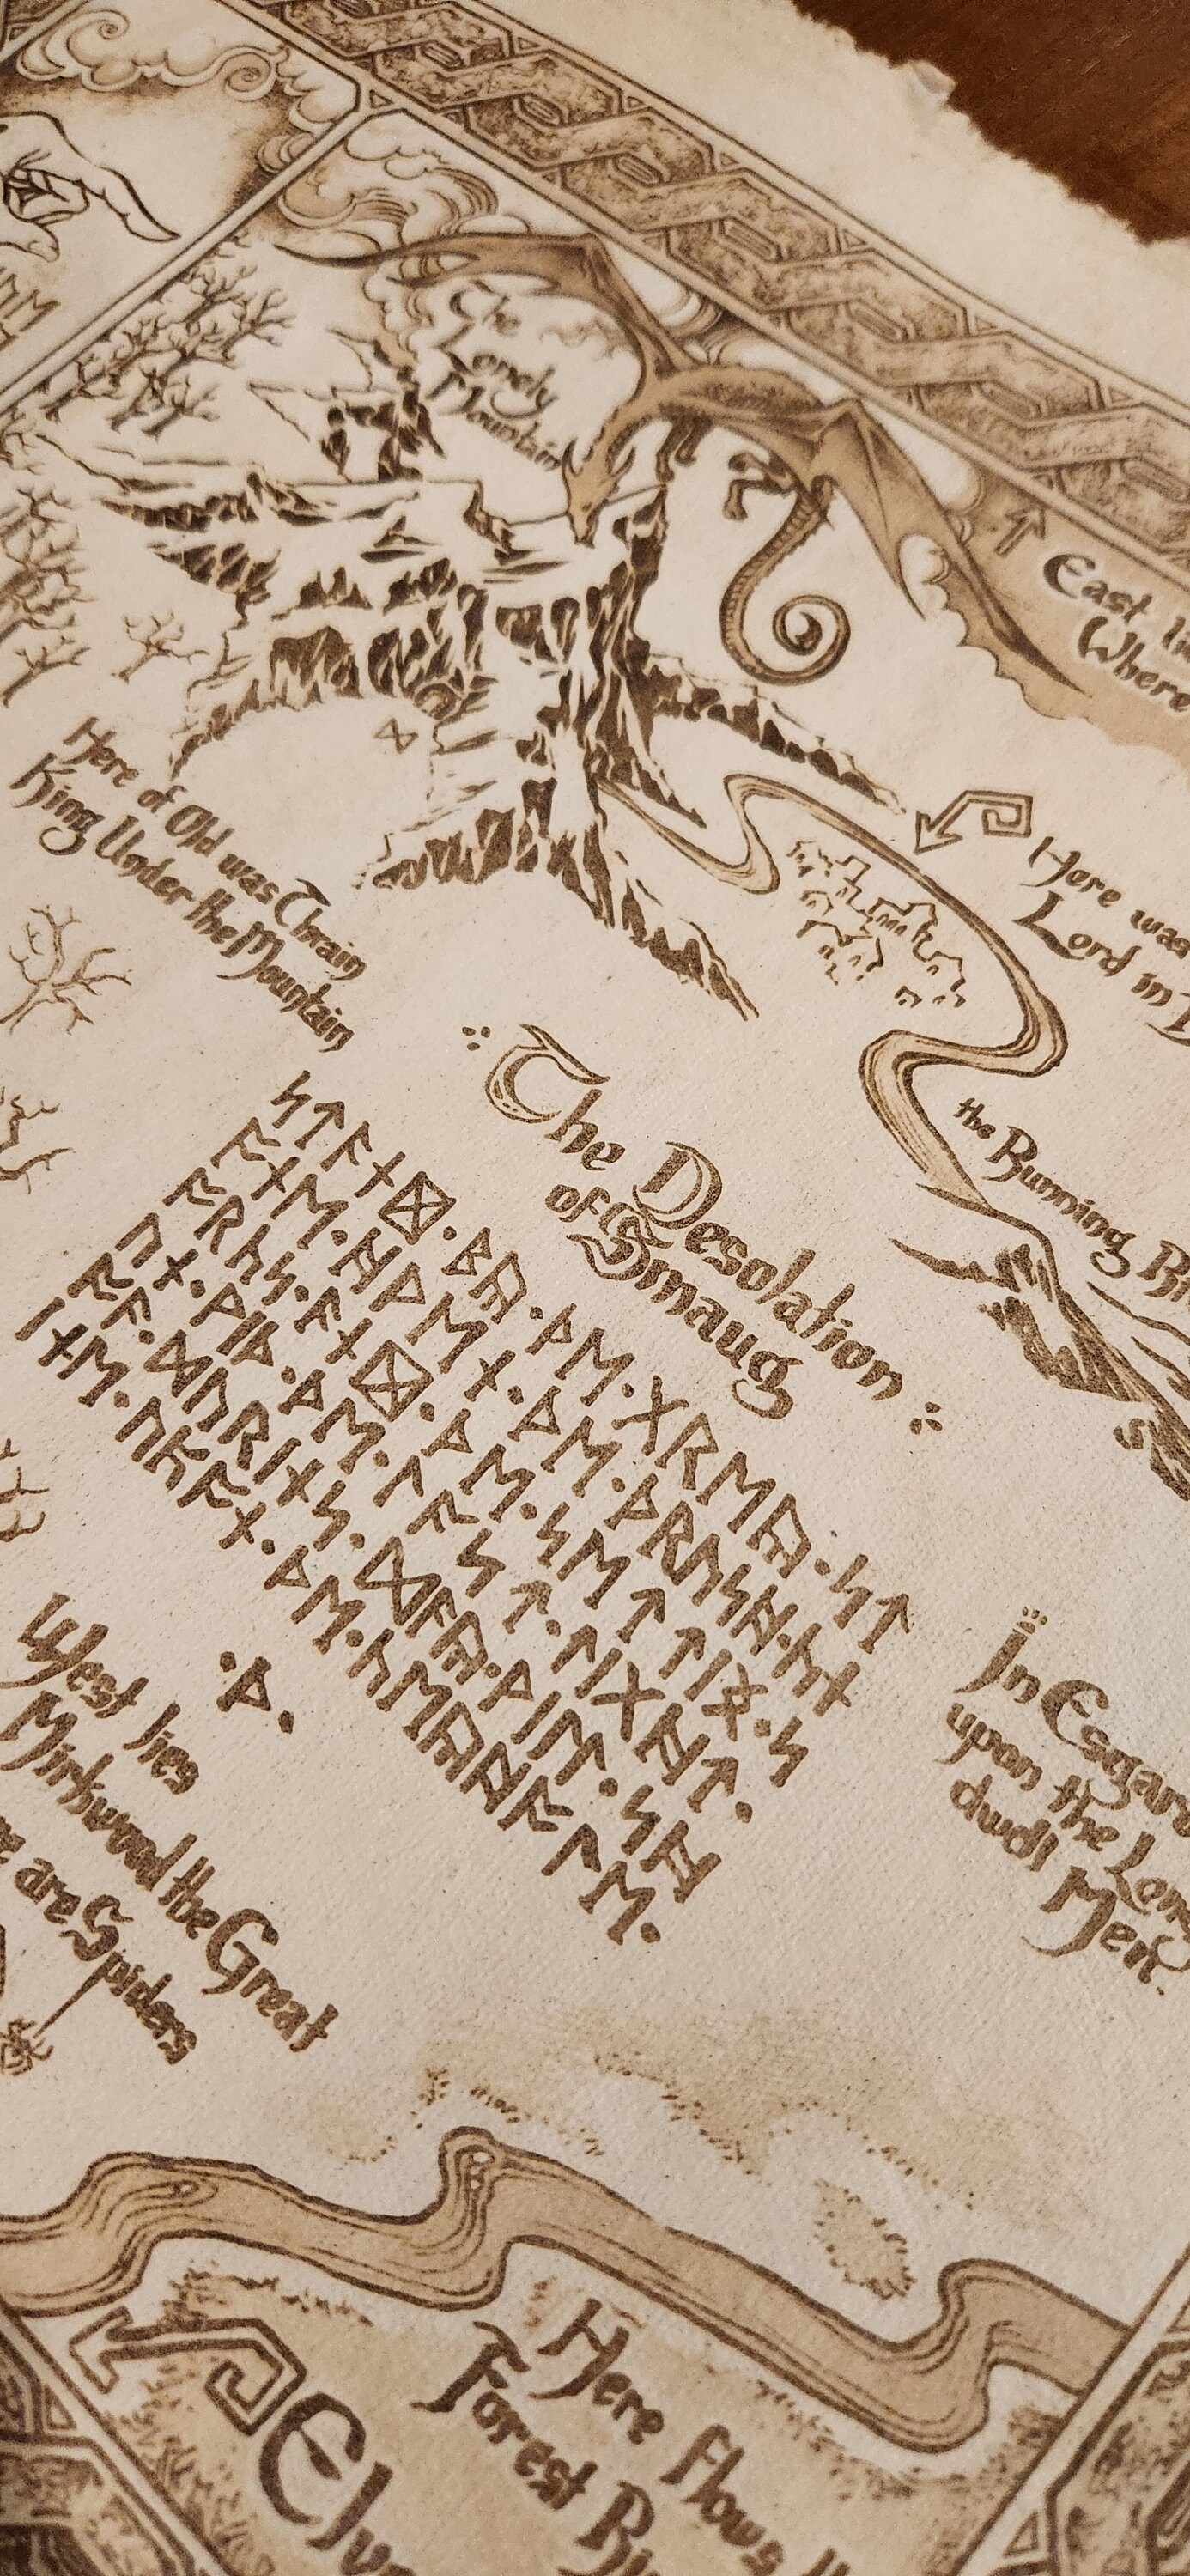 The
Lonely
Mountain
East
Where
ᛞ
Here of Old was Thrain
King Under the Mountain
Here was
Lord in
The Desolation
of Smaug
the Running
ᛋᛏᚪᚾᛞ᛫ᛒᚣ᛫ᚦᛖ᛫ᚷᚱᛖᚣ᛫ᛋᛏ
ᚩᚾᛖ᛫ᚻᚹᛖᚾ᛫ᚦᛖ᛫ᚦᚱᚢᛋᚻ᛫ᚳᚾ
ᚩᚳᛋ᛫ᚪᚾᛞ᛫ᚦᛖ᛫ᛋᛖᛏᛏᛁᛝ᛫ᛋ
ᚢᚾ᛫ᚹᛁᚦ᛫ᚦᛖ᛫ᛚᚪᛋᛏ᛫ᛚᛁᚷᚻᛏ᛫
ᚩᚠ᛫ᛞᚢᚱᛁᚾᛋ᛫ᛞᚪᚣ᛫ᚹᛁᛚᛚ᛫ᛋᚻ
ᛁᚾᛖ᛫ᚢᛈᚩᚾ᛫ᚦᛖ᛫ᚳᛖᚣᚻᚩᛚᛖ᛫
᛫ᚦ᛫
In
upon the
dwell Men.
West lies
Mirkwood the Great
are Spiders
Here flows
Forest